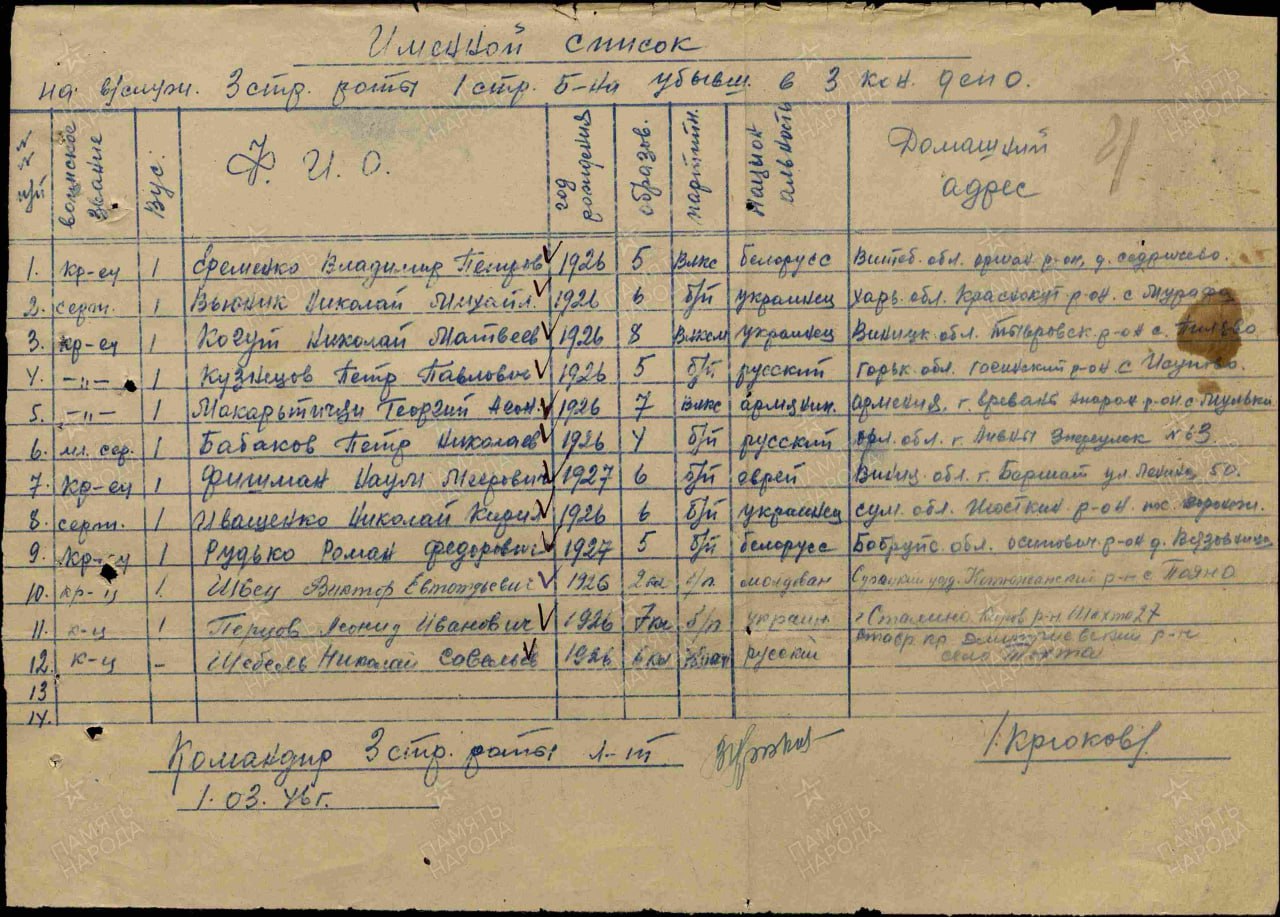 Именной список
на в/служ. 3 стр. роты 1 стр. б-на убывш. в 3 кон. депо.
воинское звание
Вус.
Ф. И. О.
год рождения
образов.
партийн.
национальность
Домашний адрес
21
1. кр-ец 1 Еременко Владимир Петров 1926 5 Влкс белорусс Витеб. обл. оршан р-он, д.
2. серж. 1 Вьюник Николай Михайл. 1926 6 б/п украинец харь. обл. Краснокут р-он. с Мурафа
3. кр-ец 1 Когут Николай Матвеев 1926 8 Влксм украинец Виницк. обл. Тывровск. р-он с.
4. -"- 1 Кузнецов Петр Павлович 1926 5 б/п русский горьк. обл. р-он. с
5. -"- 1 Георгий 1926 7 Влкс армянин. армения, г. ереван р-он. с.
6. мл. сер. 1 Бабаков Петр Николаев 1926 4 б/п русский орл. обл. г. Ливны № 63
7. кр-ец 1 Фишман Наум Меерович 1927 6 б/п еврей Виниц. обл. г. Бершат ул Ленина 50.
8. серж. 1 Иващенко Николай Кирил 1926 6 б/п украинец сум. обл. р-он.
9. кр-ец 1 Рудько Роман Федорович 1927 5 б/п белорусс Бобруйс. обл. осипович. р-он д.
10. кр-ц 1. Швец Виктор 1926 2 кл б/п молдован р-н с
11. к-ц 1 Перцов Леонид Иванович 1926 7 кл б/п украин г Сталино. Киров р-н Шахта 27
12. к-ц - Шебель Николай Савельев 1926 6 кл русский ставр. кр р-н село Тахта
13
14.
Командир 3 стр. роты л-т /Крюков/
1. 03. 46 г.
ПАМЯТЬ НАРОДА